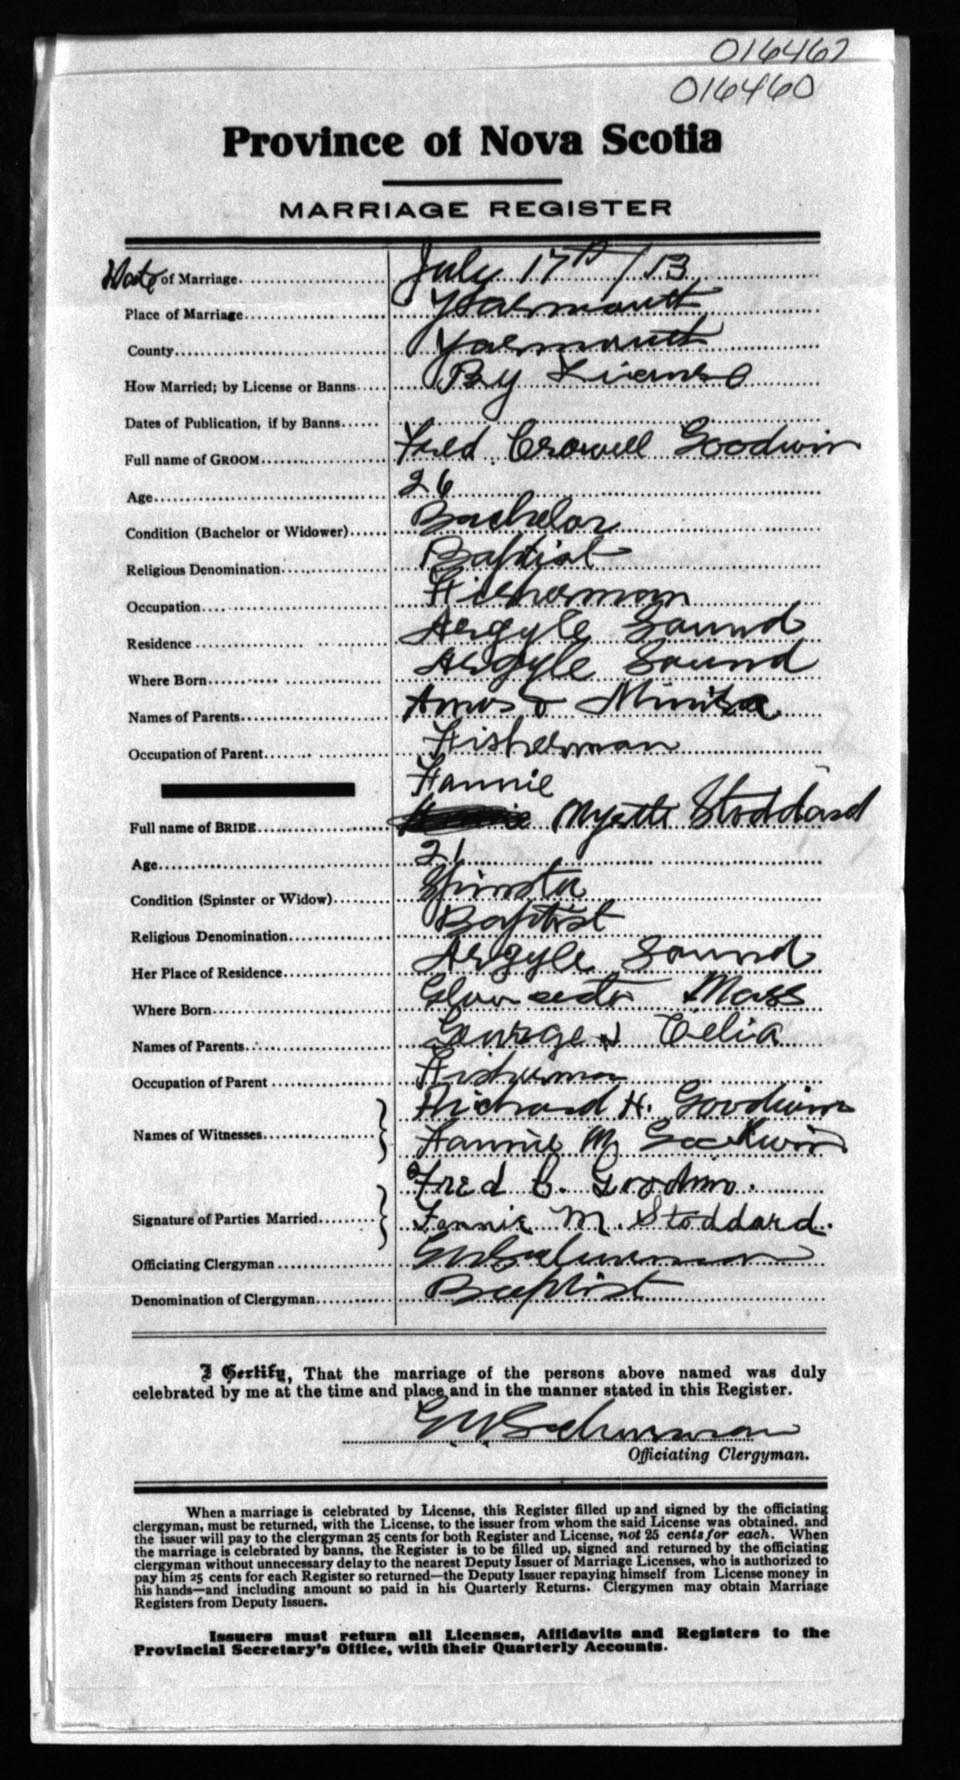 016462
016460
Province of Nova Scotia
MARRIAGE REGISTER
Date of Marriage July 17th /13
Place of Marriage Yarmouth
County Yarmouth
How Married; by License or Banns By License
Dates of Publication, if by Banns
Full name of GROOM Fred Crowell Goodwin
Age 26
Condition (Bachelor or Widower) Bachelor
Religious Denomination Baptist
Occupation Fisherman
Residence Argyle Sound
Where Born Argyle Sound
Names of Parents Amos &
Occupation of Parent Fisherman
Fannie
Full name of BRIDE Myrtle Stoddard
Age 21
Condition (Spinster or Widow) Spinster
Religious Denomination Baptist
Her Place of Residence Argyle Sound
Where Born Gloucester Mass
Names of Parents George & Celia
Occupation of Parent Fisherman
Richard H. Goodwin
Names of Witnesses Fannie M Goodwin
Fred C. Goodwin.
Signature of Parties Married Fannie M. Stoddard.
Officiating Clergyman Schurman
Denomination of Clergyman Baptist
I Certify, That the marriage of the persons above named was duly
celebrated by me at the time and place and in the manner stated in this Register.
Schurman
Officiating Clergyman.
When a marriage is celebrated by License, this Register filled up and signed by the officiating
clergyman, must be returned, with the License, to the issuer from whom the said License was obtained, and
the issuer will pay to the clergyman 25 cents for both Register and License, not 25 cents for each. When
the marriage is celebrated by banns, the Register is to be filled up, signed and returned by the officiating
clergyman without unnecessary delay to the nearest Deputy Issuer of Marriage Licenses, who is authorized to
pay him 25 cents for each Register so returned—the Deputy Issuer repaying himself from License money in
his hands—and including amount so paid in his Quarterly Returns. Clergymen may obtain Marriage
Registers from Deputy Issuers.
Issuers must return all Licenses, Affidavits and Registers to the
Provincial Secretary's Office, with their Quarterly Accounts.